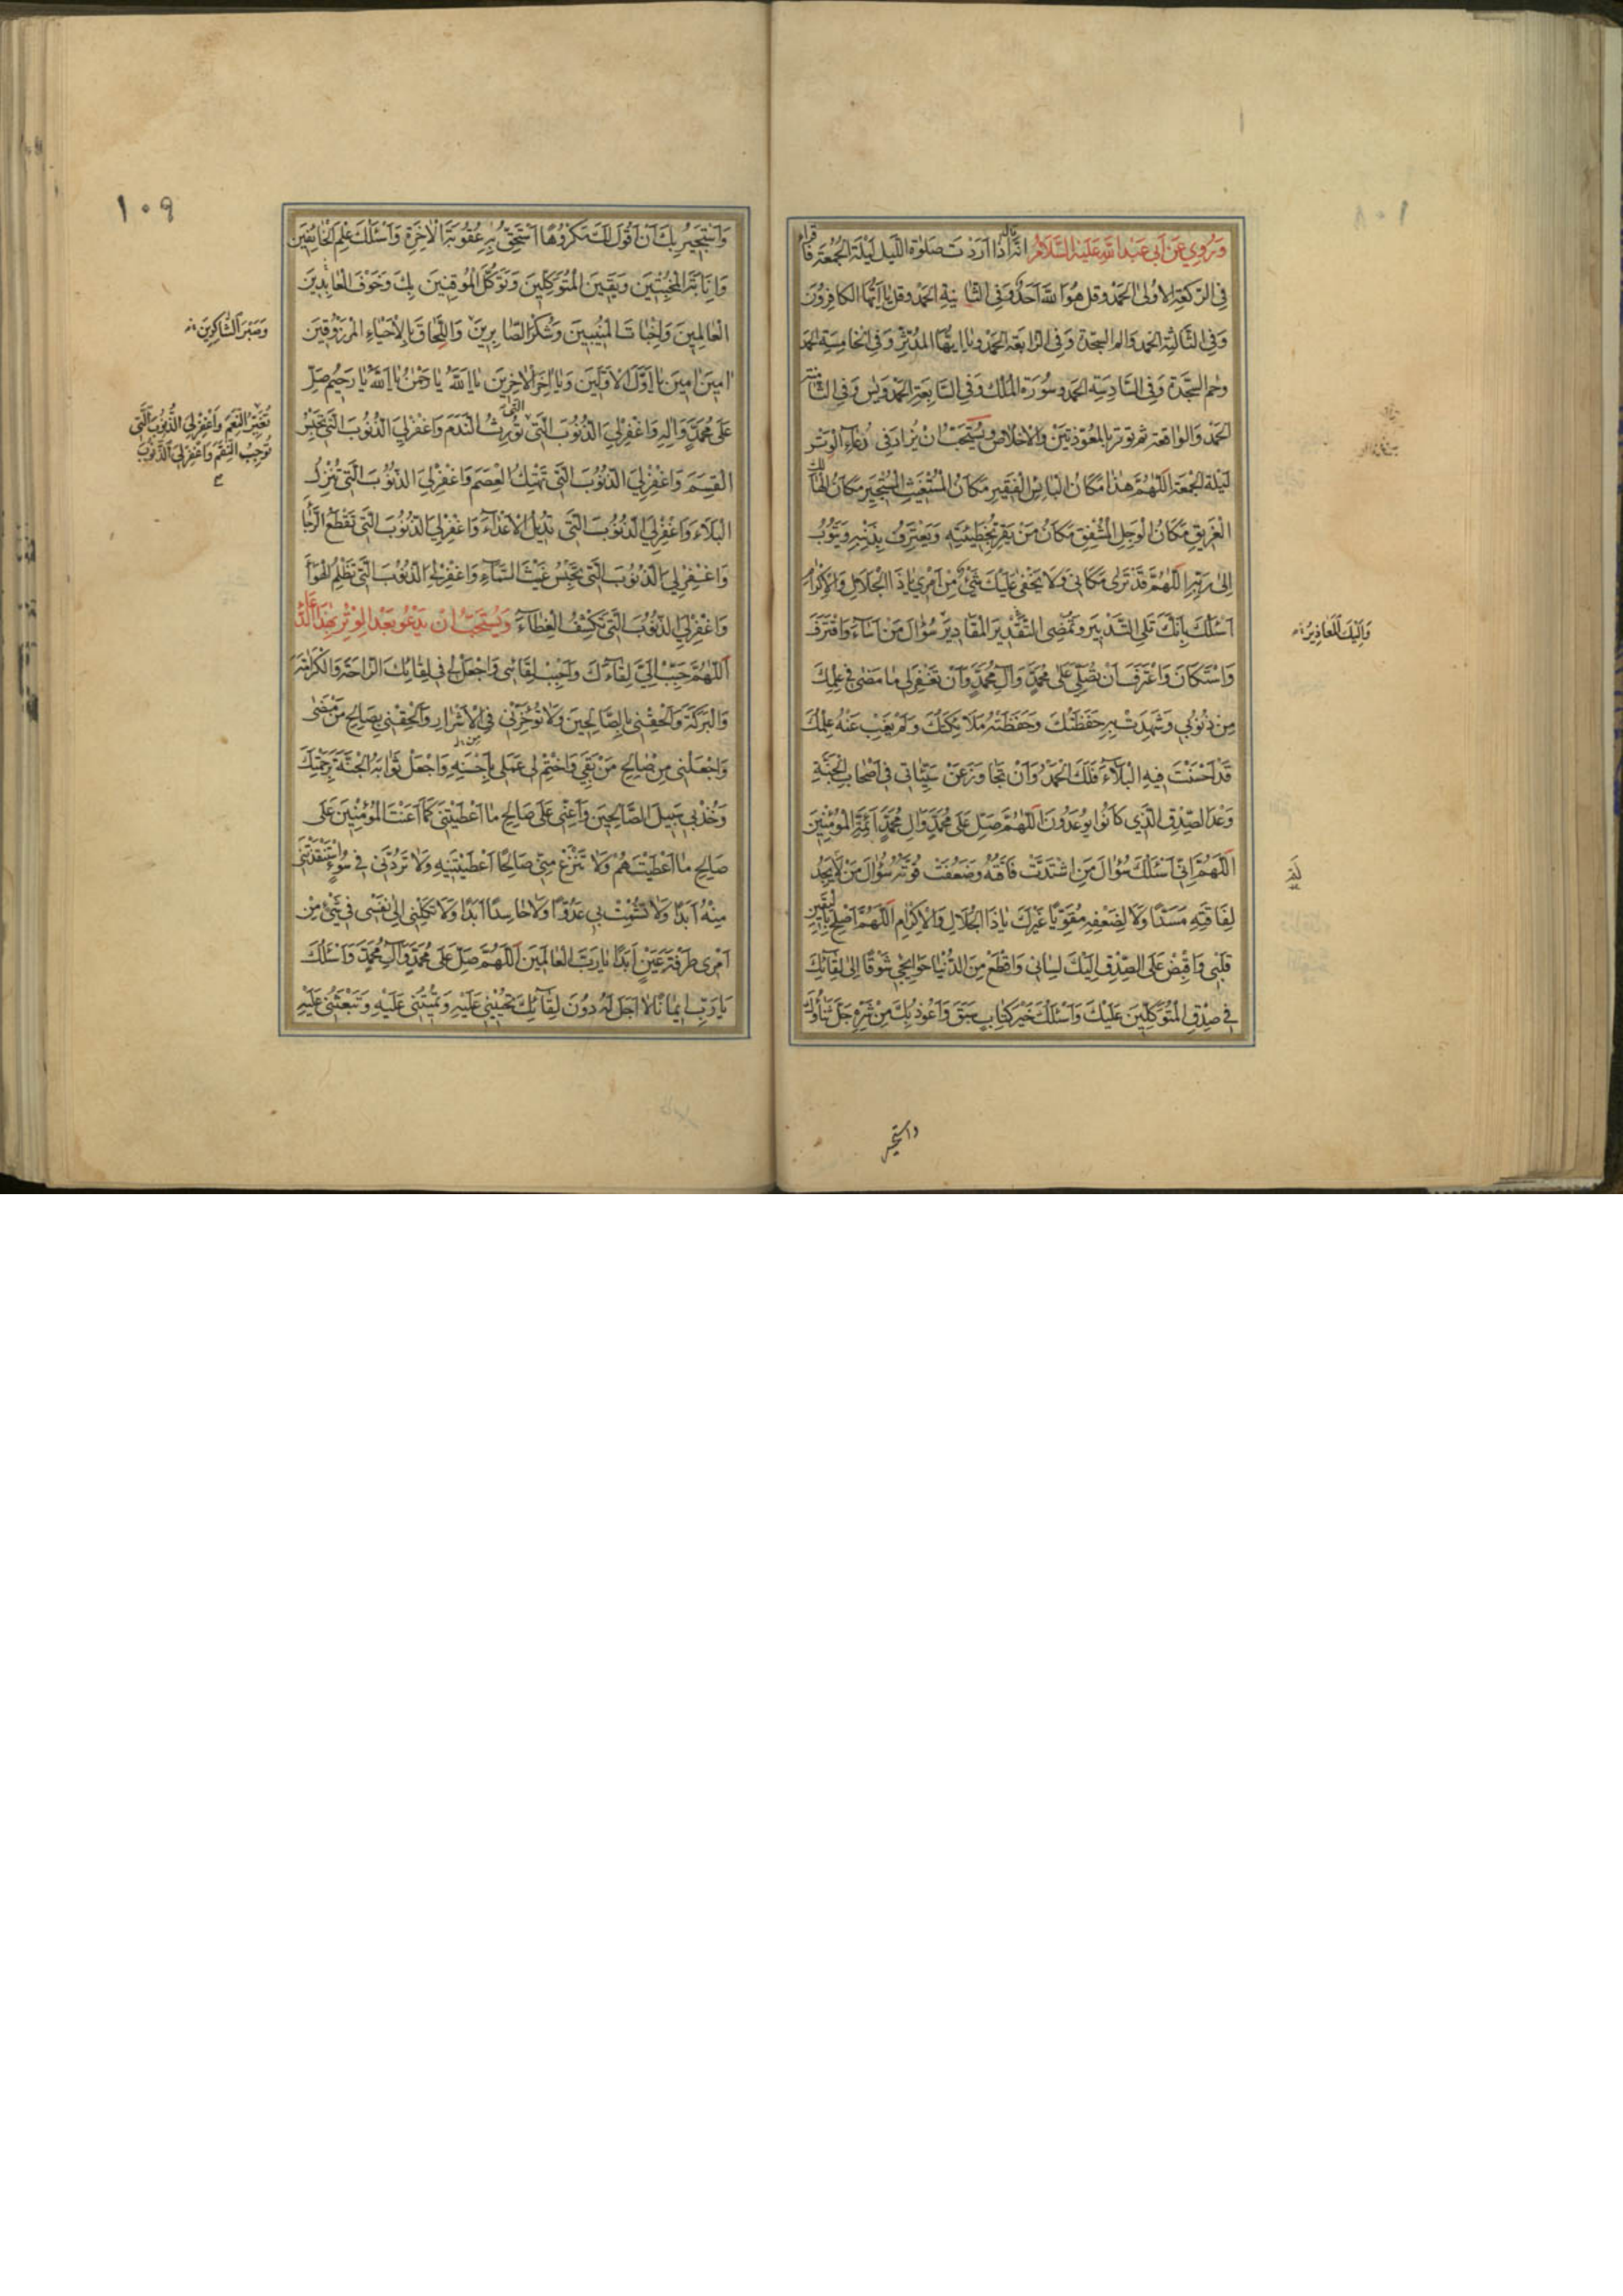 وَرُوِيَ عَنْ أَبِي عَبْدِ اللَّهِ عَلَيْهِ السَّلَامُ انَّهُ قال اذا اَرَدْتَ صَلوٰة اللَّيل لَيْلَةَ الجُمُعَةِ فَاقرأ
فِى الرَّكعَةِ الاولىٰ الحَمْدُ وَقل هُوَ اللهُ اَحَدٌ وَفِى الثّانِيَةِ الحَمْدُ وَقل يا اَيّها الكافِرُونَ
وَفِى الثّالِثَةِ الحَمد والم السجدة وَفِى الرّابعَة الحَمْدُ وَيا ايّها المدَّثِّر وَفِى الخامِسَةِ الحَمد
وحم السَّجْدَة وَفِى السّادِسَةِ الحَمد وسُورَة المُلك وَفِى السّابِعَةِ الحَمْد ويس وَفِى الثّامِنَة
الحَمْدُ وَالواقعَة ثم توتر بالمُعَوّذتين وَالاخلاص وَيُسْتَحَبّ اَنْ يُزادَ فِى دُعاءِ الوَتْر
لَيْلَة الجُمعَة اَللّهُمَّ هٰذا مَكانُ البائِسِ الفَقيرِ مَكانُ المُسْتَغيثِ المُسْتَجيرِ مَكانُ الهالِك
الغَريقِ مَكانُ الوَجِلِ المُشْفِقِ مَكانُ مَنْ يُقِرُّ بِخَطيئَتِهِ وَيَعْتَرِفُ بِذَنْبِهِ وَيَتُوبُ
اِلىٰ رَبِّهِ اَللّهُمَّ قَدْ تَرىٰ مَكانى وَلا يَخْفىٰ عَلَيْكَ شَىْءٌ مِنْ اَمْرى يا ذَا الجَلالِ وَالاِكْرامِ
اَسْئَلُكَ بِاَنَّكَ تَلِى التَّدْبيرَ وَتُمْضِى المَقاديرَ سُؤالَ مَنْ اَساءَ وَاقْتَرَفَ
وَاسْتَكانَ وَاعْتَرَفَ اَنْ تُصَلِّىَ عَلىٰ مُحَمَّدٍ وَآلِ مُحَمَّدٍ وَاَنْ تَغْفِرَ لى ما مَضىٰ فى عِلْمِكَ
مِنْ ذُنُوبى وَشَهِدَتْ بِهِ حَفَظَتُكَ وَحَفَظَتْهُ مَلائِكَتُكَ وَلَمْ يَغِبْ عَنْهُ عِلْمُكَ
قَدْ اَحْسَنْتَ فيهِ البَلاءَ فَلَكَ الحَمْدُ وَاَنْ تَجاوَزَ عَنْ سَيِّئاتى فى اَصْحابِ الجَنَّةِ
وَعْدَ الصِّدْقِ الَّذى كانُوا يُوعَدُونَ اَللّهُمَّ صَلِّ عَلىٰ مُحَمَّدٍ وَآلِ مُحَمَّدٍ اَئِمَّةِ المُؤْمِنينَ
اَللّهُمَّ اِنّى اَسْئَلُكَ سُؤالَ مَنِ اشْتَدَّتْ فاقَتُهُ وَضَعُفَتْ قُوَّتُهُ سُؤالَ مَنْ لا يَجِدُ
لِفاقَتِهِ مَسَدًّا وَلا لِضَعْفِهِ مُقَوِّيًا غَيْرَكَ يا ذَا الجَلالِ وَالاِكْرامِ اَللّهُمَّ اَصْلِحْ بِاليَقينِ
قَلْبى وَاقْبِضْ عَلَى الصِّدْقِ اِلَيْكَ لِسانى وَاقْطَعْ مِنَ الدُّنْيا حَوائِجى شَوْقًا اِلىٰ لِقائِكَ
فى صِدْقِ المُتَوَكِّلينَ عَلَيْكَ وَاَسْئَلُكَ خَيْرَ كِتابٍ سَبَقَ وَاَعُوذُ بِكَ مِنْ شَرِّهِ جَلَّ ثَناؤُكَ
وَاِلَيْكَ المَعاذيرُ
واستجير
١٠٩
وَاَسْتَجيرُ بِكَ اَنْ اَقُولَ لَكَ مَكْرُوهًا اَسْتَحِقُّ بِهِ عُقُوبَةَ الآخِرَةِ وَاَسْئَلُكَ عِلْمَ الخائِفينَ
وَاِنابَةَ المُخْبِتينَ وَيَقينَ المُتَوَكِّلينَ وَتَوَكُّلَ المُوقِنينَ بِكَ وَخَوْفَ العابِدينَ
العالِمينَ وَاِخْباتَ المُنيبينَ وَشُكْرَ الصّابِرينَ وَاللِّحاقَ بِالاَحْياءِ المَرْزُوقينَ
وَصَبْرَ الشّاكِرينَ
آمينَ آمينَ يا اَوَّلَ الاَوَّلينَ وَيا آخِرَ الآخِرينَ يا اَللهُ يا رَحْمٰنُ يا اَللهُ يا رَحيمُ صَلِّ
عَلىٰ مُحَمَّدٍ وَآلِهِ وَاغْفِرْ لِىَ الذُّنُوبَ الَّتى تُورِثُ النَّدَمَ وَاغْفِرْ لِىَ الذُّنُوبَ الَّتى تَحْبِسُ
تُغَيِّرُ النِّعَمَ وَاغْفِرْ لِىَ الذُّنُوبَ الَّتى
تُوجِبُ النِّقَمَ وَاغْفِرْ لِىَ الذُّنُوبَ
القِسَمَ وَاغْفِرْ لِىَ الذُّنُوبَ الَّتى تَهْتِكُ العِصَمَ وَاغْفِرْ لِىَ الذُّنُوبَ الَّتى تُنْزِلُ
البَلاءَ وَاغْفِرْ لِىَ الذُّنُوبَ الَّتى تُديلُ الاَعْداءَ وَاغْفِرْ لِىَ الذُّنُوبَ الَّتى تَقْطَعُ الرَّجاءَ
وَاغْفِرْ لِىَ الذُّنُوبَ الَّتى تَحْبِسُ غَيْثَ السَّماءِ وَاغْفِرْ لِىَ الذُّنُوبَ الَّتى تُظْلِمُ الهَواءَ
وَاغْفِرْ لِىَ الذُّنُوبَ الَّتى تَكْشِفُ الغِطاءَ وَيُسْتَحَبُّ اَنْ يَدْعُوَ بَعْدَ الوِتْرِ بِهٰذَا الدُّعاء
اَللّهُمَّ حَبِّبْ اِلَىَّ لِقاءَكَ وَاَحْبِبْ لِقائى وَاجْعَلْ لى فى لِقائِكَ الرّاحَةَ وَالكَرامَةَ
وَالبَرَكَةَ وَاَلْحِقْنى بِالصّالِحينَ وَلا تُؤَخِّرْنى فِى الاَشْرارِ وَاَلْحِقْنى بِصالِحِ مَنْ مَضىٰ
وَاجْعَلْنى مِنْ صالِحِ مَنْ بَقِىَ وَاخْتِمْ لى عَمَلى بِاَحْسَنِهِ وَاجْعَلْ ثَوابَهُ الجَنَّةَ بِرَحْمَتِكَ
وَخُذْ بى سَبيلَ الصّالِحينَ وَاَعِنّى عَلىٰ صالِحِ ما اَعْطَيْتَنى كَما اَعَنْتَ المُؤْمِنينَ عَلىٰ
صالِحِ ما اَعْطَيْتَهُمْ وَلا تَنْزِعْ مِنّى صالِحًا اَعْطَيْتَنيهِ وَلا تَرُدَّنى فى سُوءٍ اسْتَنْقَذْتَنى
مِنْهُ اَبَدًا وَلا تُشْمِتْ بى عَدُوًّا وَلا حاسِدًا اَبَدًا وَلا تَكِلْنى اِلىٰ نَفْسى فى شَىْءٍ مِنْ
اَمْرى طَرْفَةَ عَيْنٍ اَبَدًا يا رَبَّ العالَمينَ اَللّهُمَّ صَلِّ عَلىٰ مُحَمَّدٍ وَآلِ مُحَمَّدٍ وَاَسْئَلُكَ
يا رَبِّ ايمانًا لا اَجَلَ لَهُ دُونَ لِقائِكَ تُحْيينى عَلَيْهِ وَتُميتُنى عَلَيْهِ وَتَبْعَثُنى عَلَيْهِ